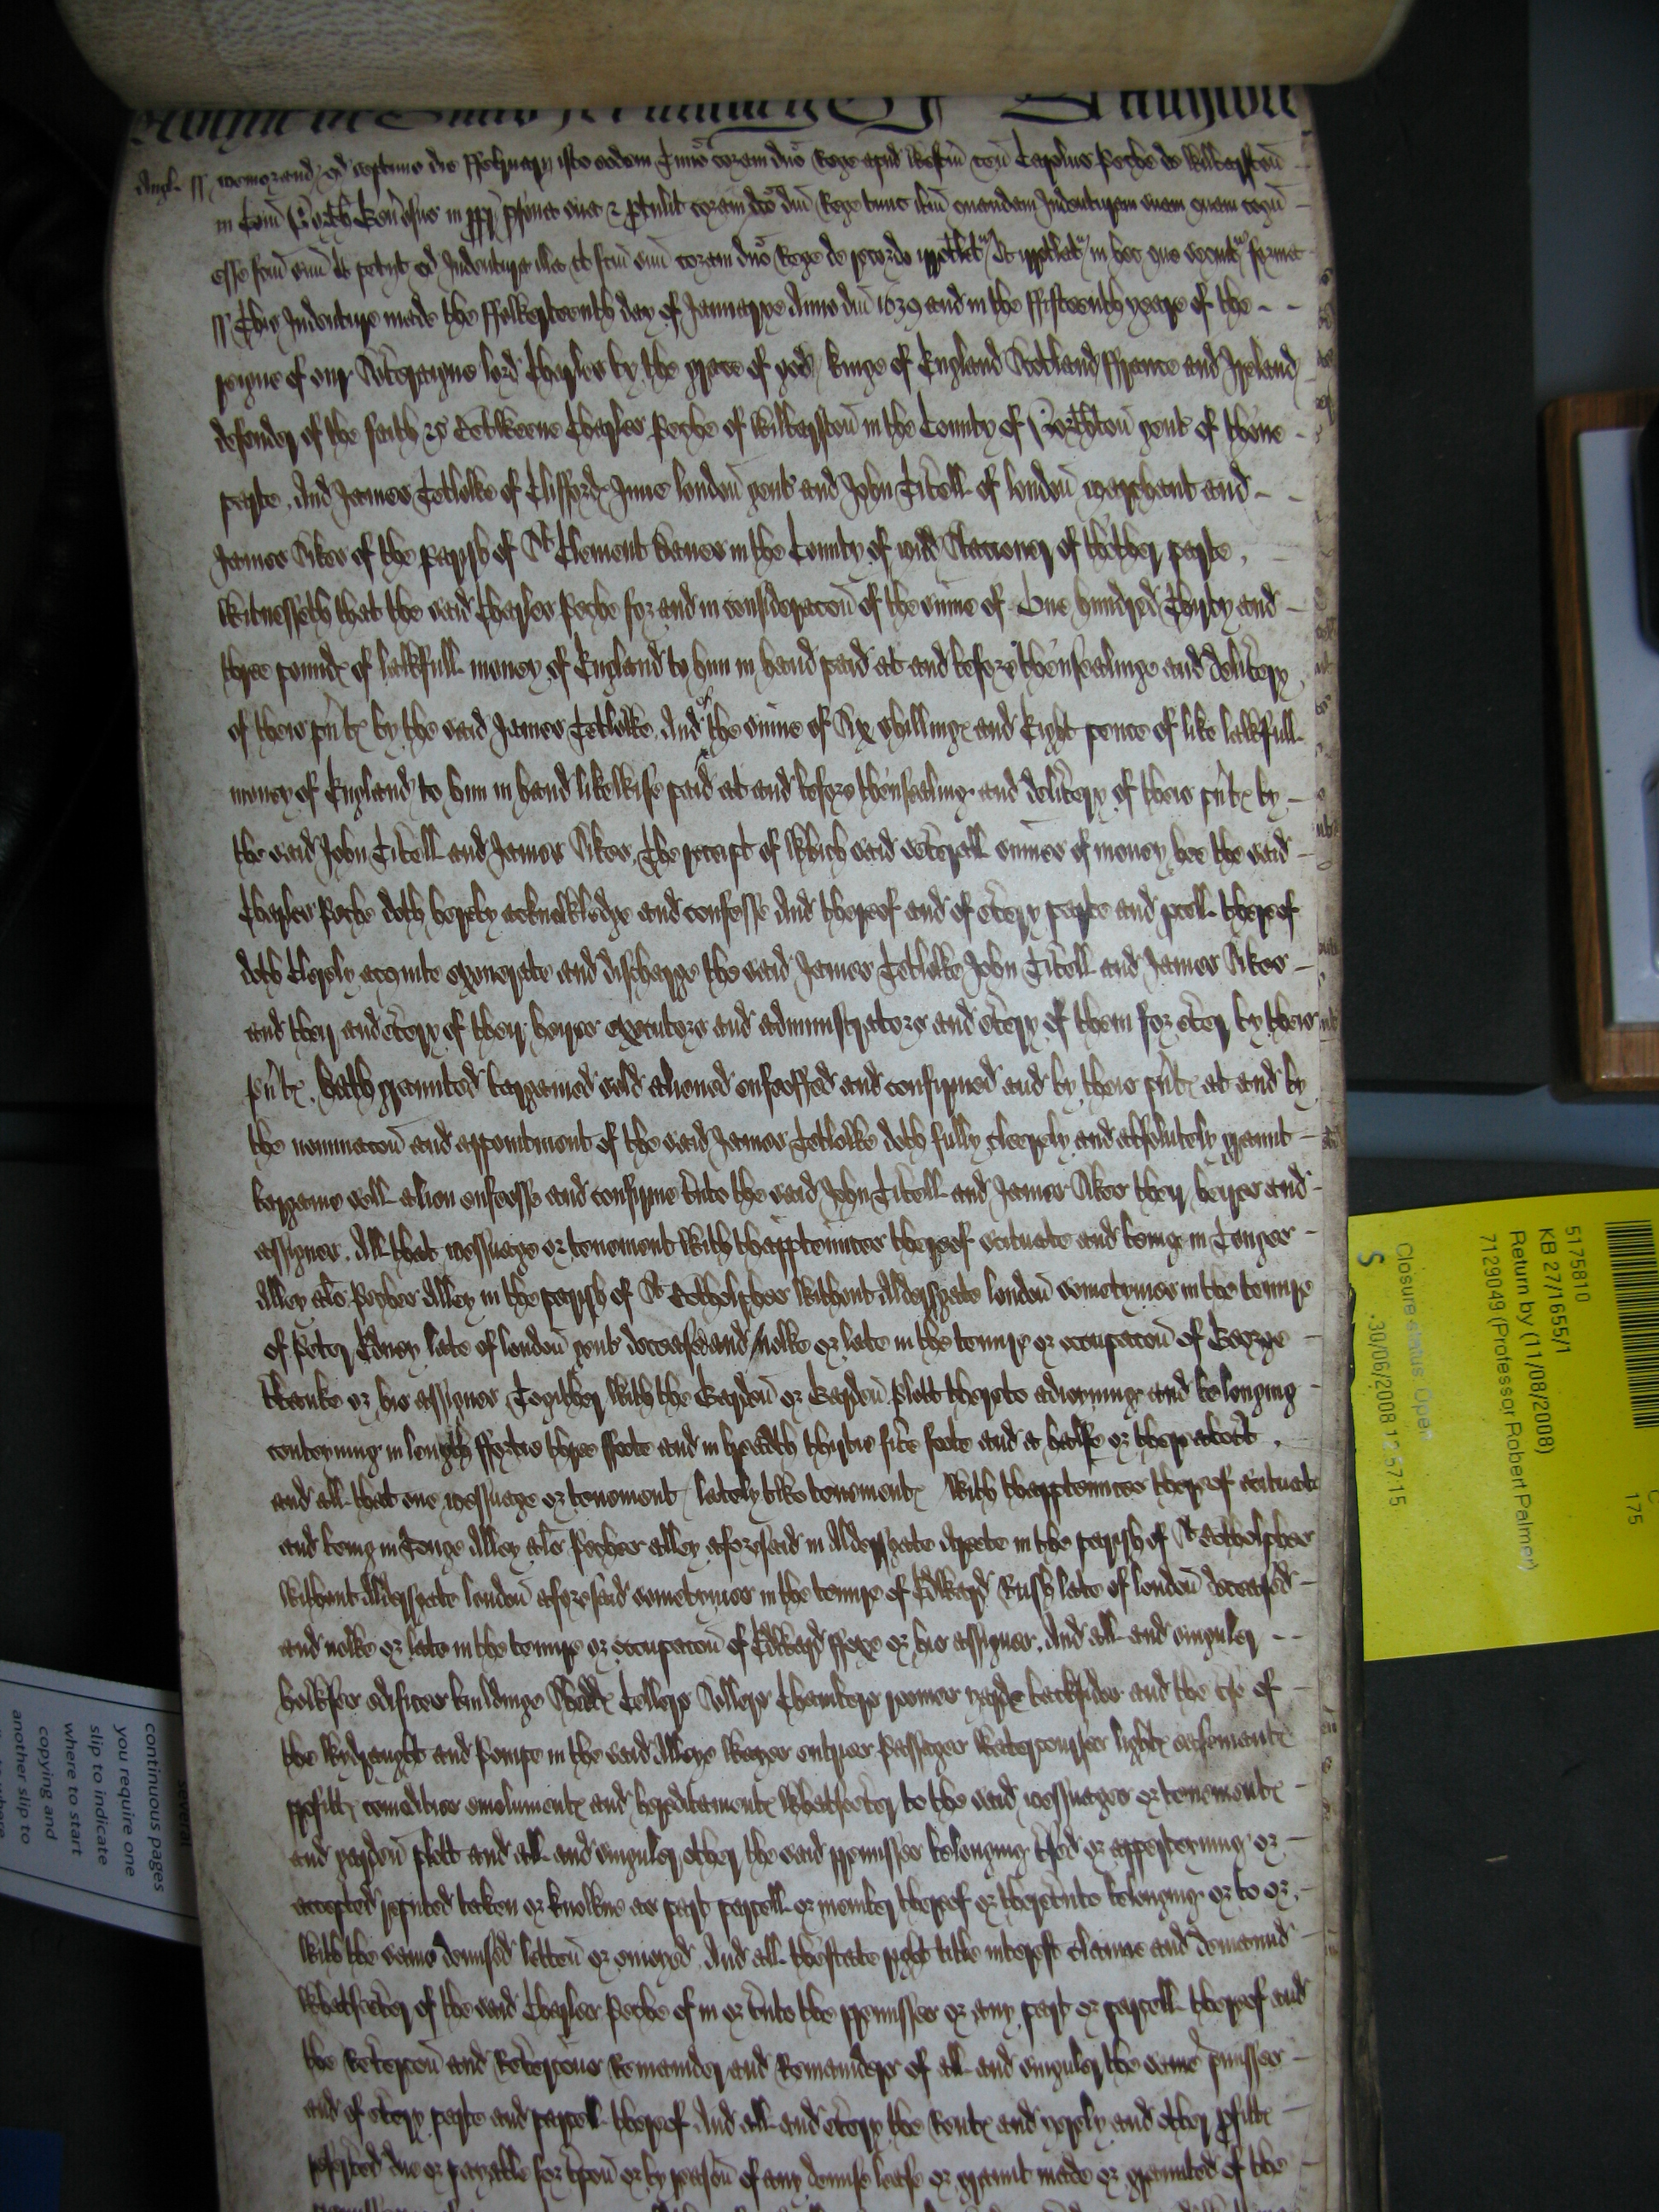 Angl ss Memorand qd septimo die Februarij isto eodem Timo coram dno Rege apud Westm ven Carolus Peche de Wilbarston
in Com North Gen osus in ppr psona sua & ptulit coram dco dno Rege tunc ibm quandam Indenturam suam quam cogn
esse scm suum Et petijt qd Indentura illa ut scm suum coram dno Rege de recordo irrotlet Et irrotlat in hec que sequit forma
ss This Indenture made the ffowerteenth day of Januarye Anno dni 1639 and in the ffifteenth yeare of the
reigne of our Soveraigne lord Charles by the grace of god kinge of England Scotland ffrance and Ireland
defender of the faith &c Betweene Charles Peche of Wilbarston in the County of Northton gent of thone
parte And James Tetlowe of Cliffords Inne london gent and John Tivell of london marchant and
James Sikes of the parish of St Clement Danes in the County of midd Stacioner of thother parte
Witnesseth that the said Charles Peche for and in consideracon of the sume of One hundred Thirty and
three pounds of lawfull money of England to him in hand paid at and before thensealinge and delivery
of theis pnts by the said James Tetlowe And of the sume of Six shillings and Eight pence of like lawfull
money of England to him in hand likewise paid at and before thensealing and delivery of theis pnts by
the said John Tivell and James Sikes The receipt of which said severall sumes of money hee the said
Charles Peche doth hereby acknowledge and confesse And thereof and of every parte and pcell thereof
doth clerely acquite exonerate and discharge the said James Tetlowe John Tivell and James Sikes
and their and every of their heires executors and administrators and every of them for ever by theis
pnts hath graunted bargained sold aliened enfeoffed and confirmed and by theis pnts at and by
the nominacon and appointment of the said James Tetlowe doth fully cleerely and absolutely graunt
bargaine sell alien enfeoffe and confirme unto the said John Tivell and James Sikes their heires and
assignes All that messuage or tenement with thapptennces thereof scituate and being in Tonges
Alley als Peches Alley in the parish of St Botholphes without Aldersgate london sometymes in the tenure
of Peter Edney late of london gent deceased and nowe or late in the tenure or occupacon of George
or his assignes Together with the Garden or Garden plott thereto adioyninge and belonging
conteyning in length ffortie three ffoote and in breadth thirtie five foote and a halfe or thereabout
and all that one messuage or tenement lately two tenements with thapptennces thereof scituate
and being in Tonge Alley als Peches alley aforesaid in Aldersgate streete in the parish of St Botholphes
without Aldersgate london aforesaid sometymes in the tenure of Edward Rush late of london deceased
and nowe or late in the tenure or occupacon of Edward ffoxe or his assignes And all and singuler
howses edifices buildings Shedds Cellers Sollers Chambers roomes yards backsides and the use of
the Wydraught and Pompe in the said Alleye Wayes entries Passages Watercourses lights easements
profitts comodities emoluments and hereditaments whatsoever to the said messuages or tenements
and garden plott and all and singuler other the said premisses belonging used or apperteyning or
accepted reputed taken or knowne as part parcell or member thereof or thereunto belonging or to or
with the same demised letten or enioyed And all thestate right title interest claime and demaund
whatsoever of the said Charles Peche of in or unto the premisses or any part or parcell thereof and
the Revercon and Revercons Remainder and Remainders of all and singuler the same pmisses
and of every parte and parcell thereof And all and every the Rents and yerely and other pfitts
reserved due or payable for upon or by reason of any demise lease or graunt made or graunted of the
5175810
KB 27/1655/1
Return by (11/08/2008)
7129049 (Professor Robert Palmer)
Closure status: Open
S
30/06/2008 12:57:15
175
several
continuous pages
you require one
slip to indicate
where to start
copying and
another slip to